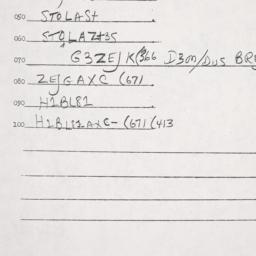 050 STOLASt
060 STOLAZt35
070 G3ZEJK(366 D3on/Dus BRE
080 ZEJGAXC (671
090 H1BL81
100 H1BL81AXC- (671 (413